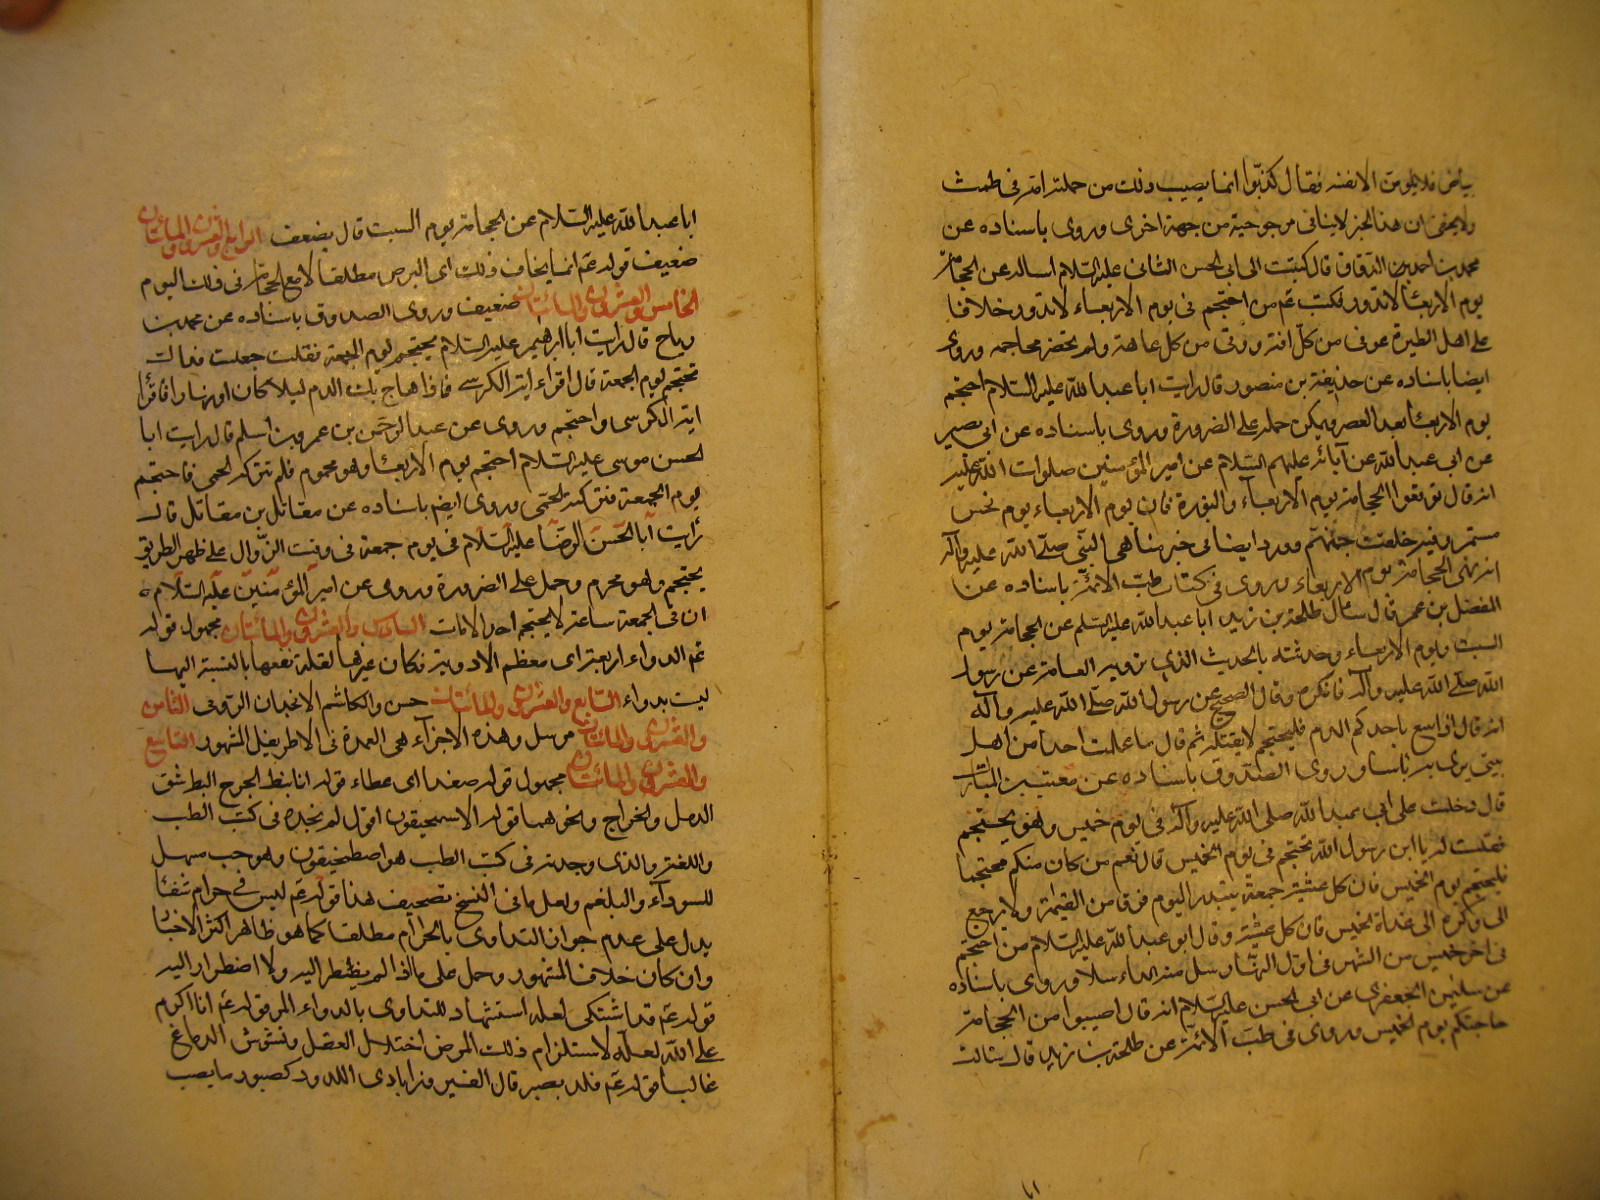 بياض فلا يلومن الا نفسه فقال كذبوا انما يصيب ذلك من حملته امه في طمث
ولا يخفى ان هذا الخبر لا ينافي مرجوحية من جهة اخرى وروى باسناده عن
محمد بن احمد بن الدقاق قال كتبت الى ابي الحسن الثاني عليه السلام اساله عن الحجامة
يوم الاربعاء لا تدور فكتب عم من احتجم في يوم الاربعاء لا تدور خلافا
على اهل الطيرة عوفي من كل افة ووقي من كل عاهة ولم تخضر محاجمه وروى
ايضا باسناده عن حذيفة بن منصور قال رايت ابا عبد الله عليه السلام احتجم
يوم الاربعاء بعد العصر ويمكن حمله على الضرورة وروى باسناده عن ابي بصير
عن ابي عبد الله عن آبائه عليهم السلام عن امير المؤمنين صلوات الله عليه
انه قال توقوا الحجامة يوم الاربعاء والنورة فان يوم الاربعاء يوم نحس
مستمر وفيه خلقت جهنم وورد ايضا في خبر مناهي النبي صلى الله عليه وآله
انه نهى الحجامة يوم الاربعاء وروى في كتاب طب الائمة باسناده عن
المفضل بن عمر قال سأل طلحة بن زيد ابا عبد الله عليه السلم عن الحجامة يوم
السبت ويوم الاربعاء وحدثته بالحديث الذي ترويه العامة عن رسول
الله صلى الله عليه وآله فانكره وقال الصحيح عن رسول الله صلى الله عليه وآله
انه قال اذا تبيغ باحدكم الدم فليحتجم لا يقتله ثم قال ما علمت احدا من اهل
بيتي يرى به باسا وروى الصدوق باسناده عن معتب بن المبارك
قال دخلت على ابي عبد الله صلى الله عليه وآله في يوم خميس وهو يحتجم
فقلت له يا ابن رسول الله تحتجم في يوم الخميس قال نعم من كان منكم محتجما
فليحتجم يوم الخميس فان كل عشية جمعة يبتدر اليوم فرقا من القيمة ولا يرجع
الى وكره الى غداة الخميس فان كل عشية وقال ابو عبد الله عليه السلام من احتجم
في اخر خميس من الشهر في اول النهار سل منه الداء سلا وروى باسناده
عن سليمن الجعفري عن ابي الحسن عليه السلام انه قال اصيبوا من الحجامة
حاجتكم يوم الخميس وروى في طب الائمة عن طلحة بن زيد قال سالت
ابا عبد الله عليه السلام عن الحجامة يوم السبت قال يضعف الرابع والعشرون والمائتان
ضعيف قوله عم انما يخاف ذلك اى البرص مطلقا لا مع الحجامة في ذلك اليوم
الخامس والعشرون والمائتان ضعيف وروى الصدوق باسناده عن محمد بن
رياح قال رايت ابا ابراهيم عليه السلام يحتجم يوم الجمعة فقلت جعلت فداك
تحتجم يوم الجمعة قال اقراء اية الكرسي فاذا هاج بك الدم ليلا كان او نهارا فاقرأ
اية الكرسي واحتجم وروى عن عبد الرحمن بن عمرو بن اسلم قال رايت ابا
الحسن موسى عليه السلام احتجم يوم الاربعاء وهو محموم فلم تتركه الحمى فاحتجم
يوم الجمعة فتركته الحمى وروى ايضم باسناده عن مقاتل بن مقاتل قال
رأيت ابا الحسن الرضا عليه السلام في يوم جمعة في وقت الزوال على ظهر الطريق
يحتجم وهو محرم وحمل على الضرورة وروى عن امير المؤمنين عليه السلام
ان في الجمعة ساعة لا يحتجم احد الا مات السادس والعشرون والمائتان مجهول قوله
عم الدواء اربعة اى معظم الادوية فكان غيرها لقلة نفعها بالنسبة اليها
ليست بدواء السابع والعشرون والمائتان حسن والكاشم الانجدان الرومى الثامن
والعشرون والمائتان مرسل وهذه الاجزاء هي العمدة في الاطريفل المشهور التاسع
والعشرون والمائتان مجهول قوله صفدا اى عطاء قوله انا نبط الجرح البط شق
الدمل والخراج ونحوهما قوله الاسمحيقون اقول لم نجده في كتب الطب
واللغة والذى وجدته في كتب الطب هو اصطمخيقون وهو حب مسهل
للسوداء والبلغم ولعل ما في النسخ تصحيف هذا قوله عم ليس في حرام شفاء
يدل على عدم جواز التداوى بالحرام مطلقا كما هو ظاهر اكثر الاخبار
وان كان خلاف المشهور وحمل على ما اذا لم يضطر اليه ولا اضطرار اليه
قوله عم قد اشتكى لعله استشهاد للتداوى بالدواء المر قوله عم انا اكرم
على الله لعله لاستلزام ذلك المرض اختلال العقل وتشوش الدماغ
غالبا قوله عم فلد بصبر قال الفيروزابادى اللدود كصبور ما يصب